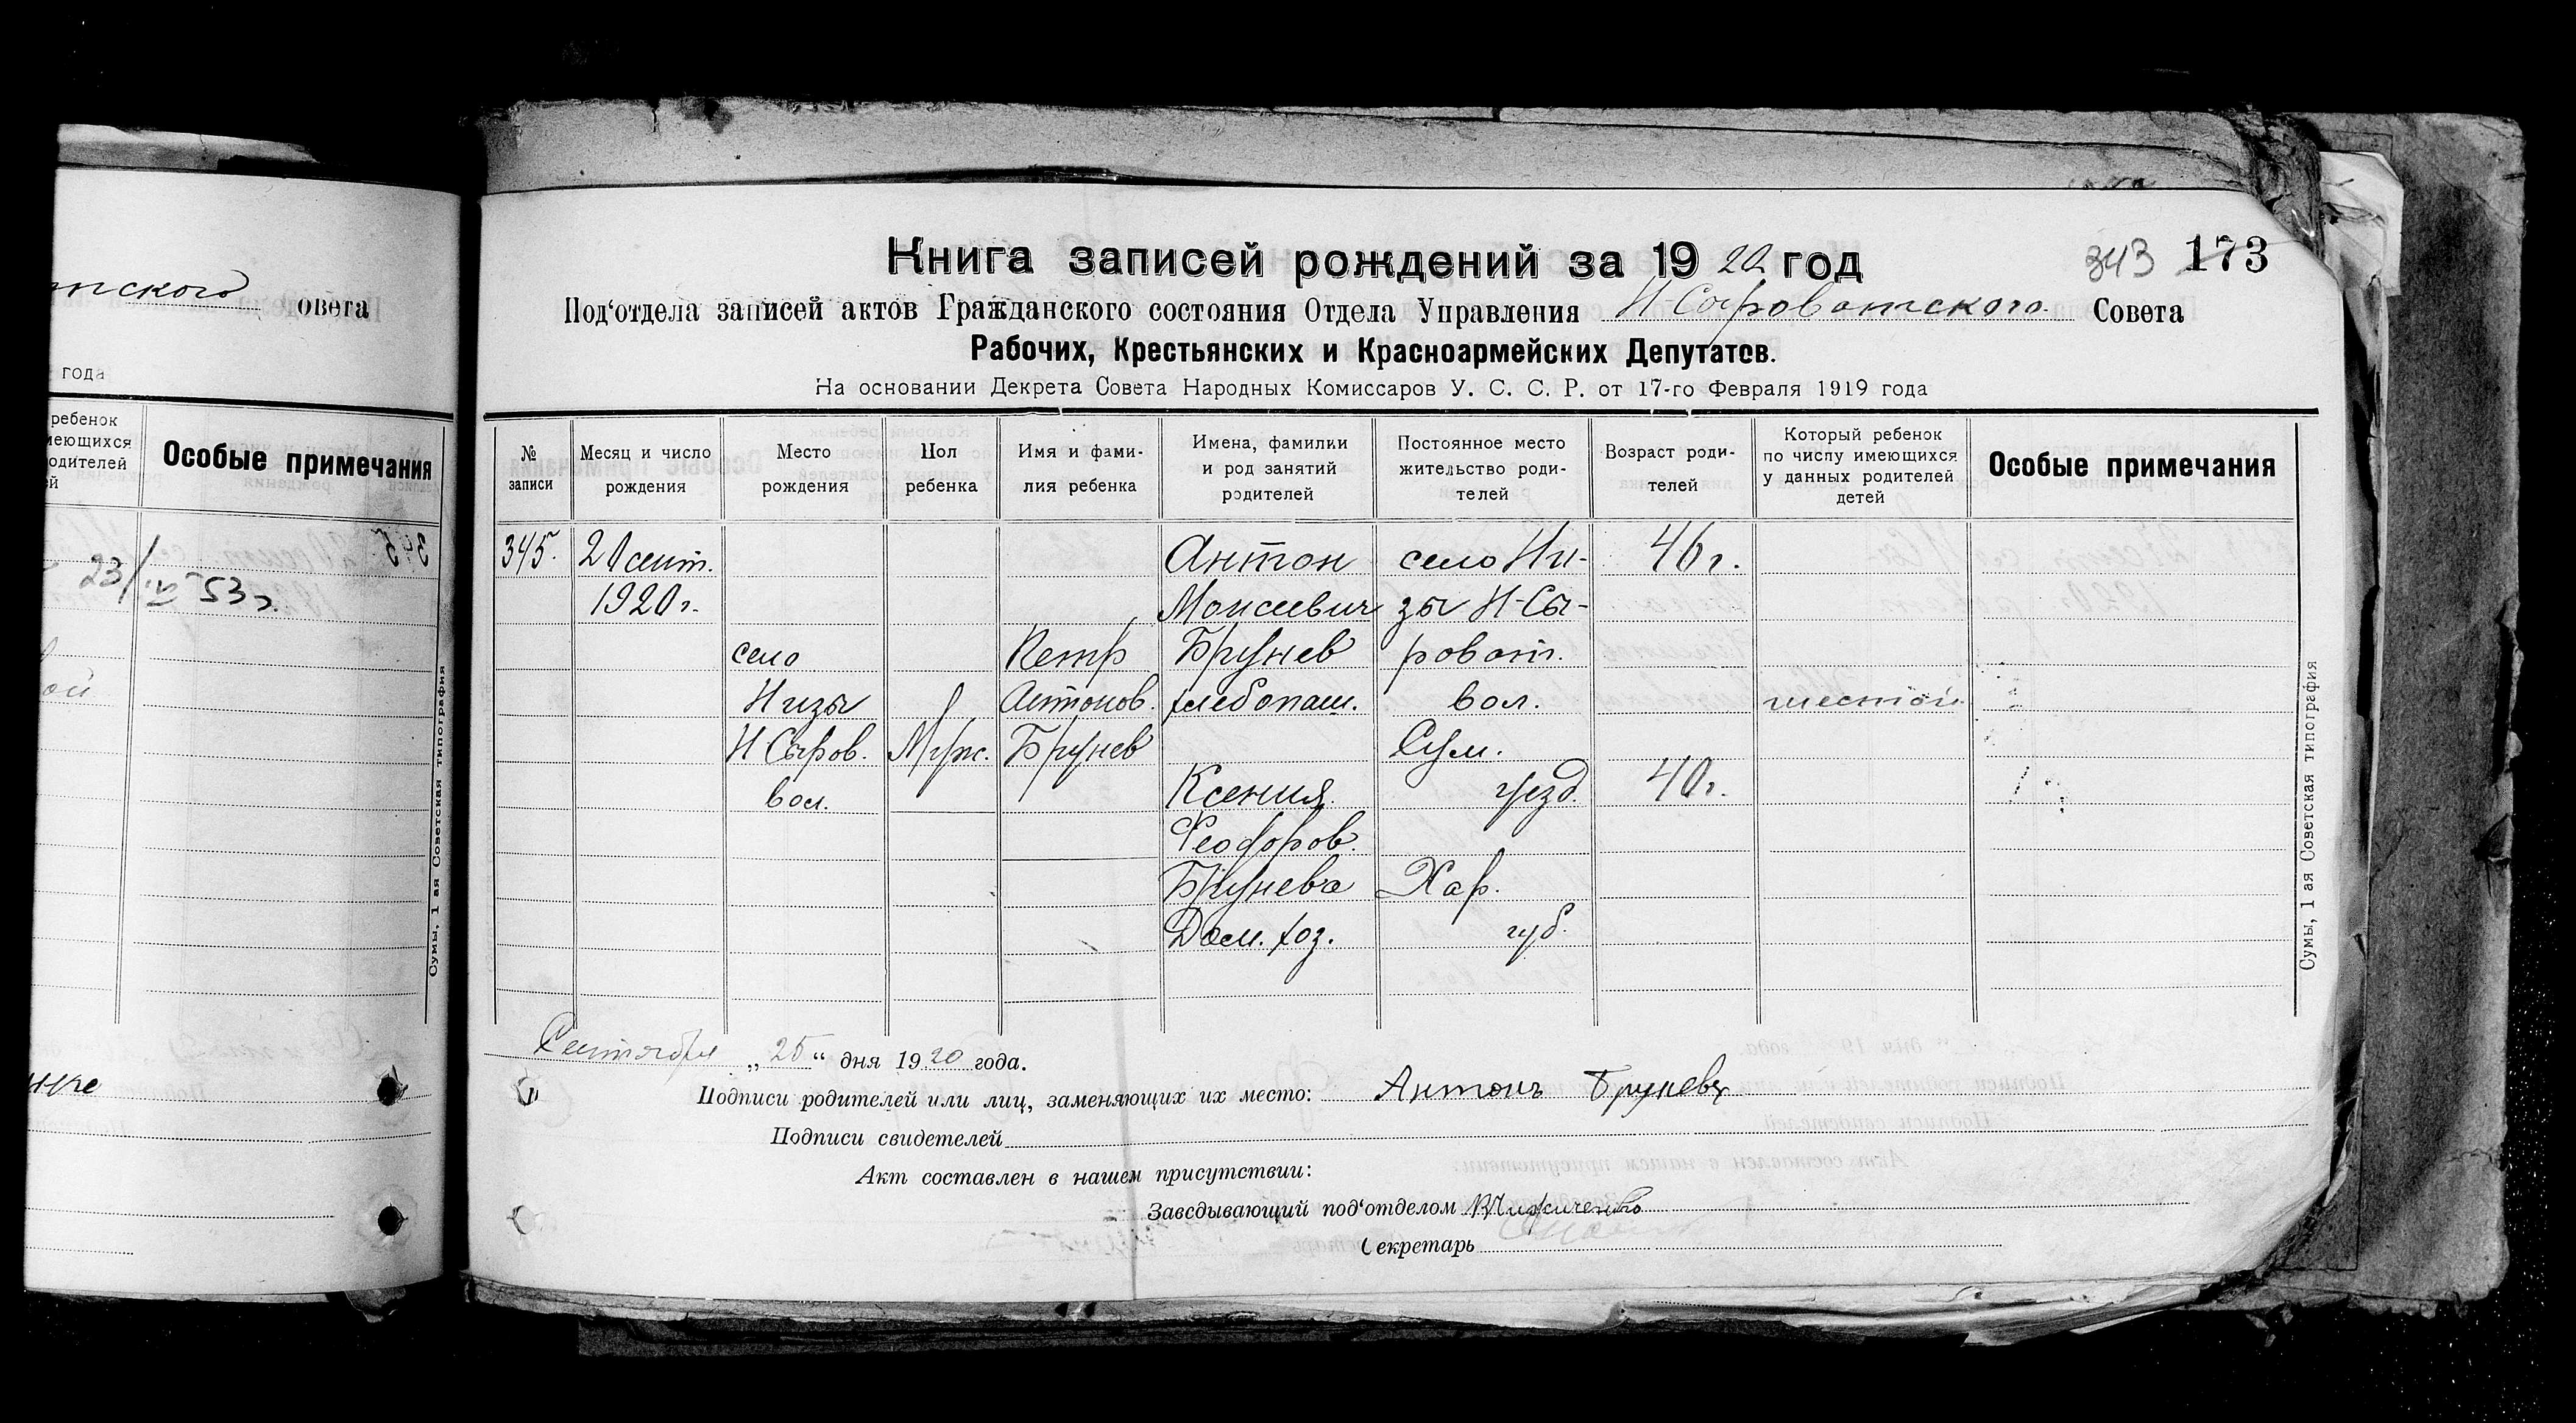 нского овета
года
ребенок
меющихся
одителей
ей
Особые примечания
23/IV 53 г.
ой
Сумы, 1 ая Советская типография
343 173
Книга записей рождений за 1920 год
Под‘отдела записей актов Гражданского состояния Отдела Управления Н Сыроватского Совета
Рабочих, Крестьянских и Красноармейских Депутатов.
На основании Декрета Совета Народных Комиссаров У. С. С. Р. от 17-го Февраля 1919 года
№
записи
Месяц и число
рождения
Место
рождения
Пол
ребенка
Имя и фами-
лия ребенка
Имена, фамилии
и род занятий
родителей
Постоянное место
жительство роди-
телей
Возраст роди-
телей
Который ребенок
по числу имеющихся
у данных родителей
детей
Особые примечания
345.
20 сент.
1920 г.
село
Низы
Н Сыров.
вол.
Муж.
Петр
Антонов.
Брунев
Антон
Моисеевич
Брунев
хлебопаш.
Ксения
Феодоров.
Брунева
Дом. хоз.
село Ни-
зы Н-Сы-
роват.
вол.
Сум.
уезд.
Хар.
губ.
46 г.
40 г.
шестой
Сумы, 1 ая Советская типография
Сентября „25“ дня 1920 года.
Подписи родителей или лиц, заменяющих их место: Антонъ Бруневъ
Подписи свидетелей
Акт составлен в нашем присутствии:
Заведывающий под‘отделом
Секретарь